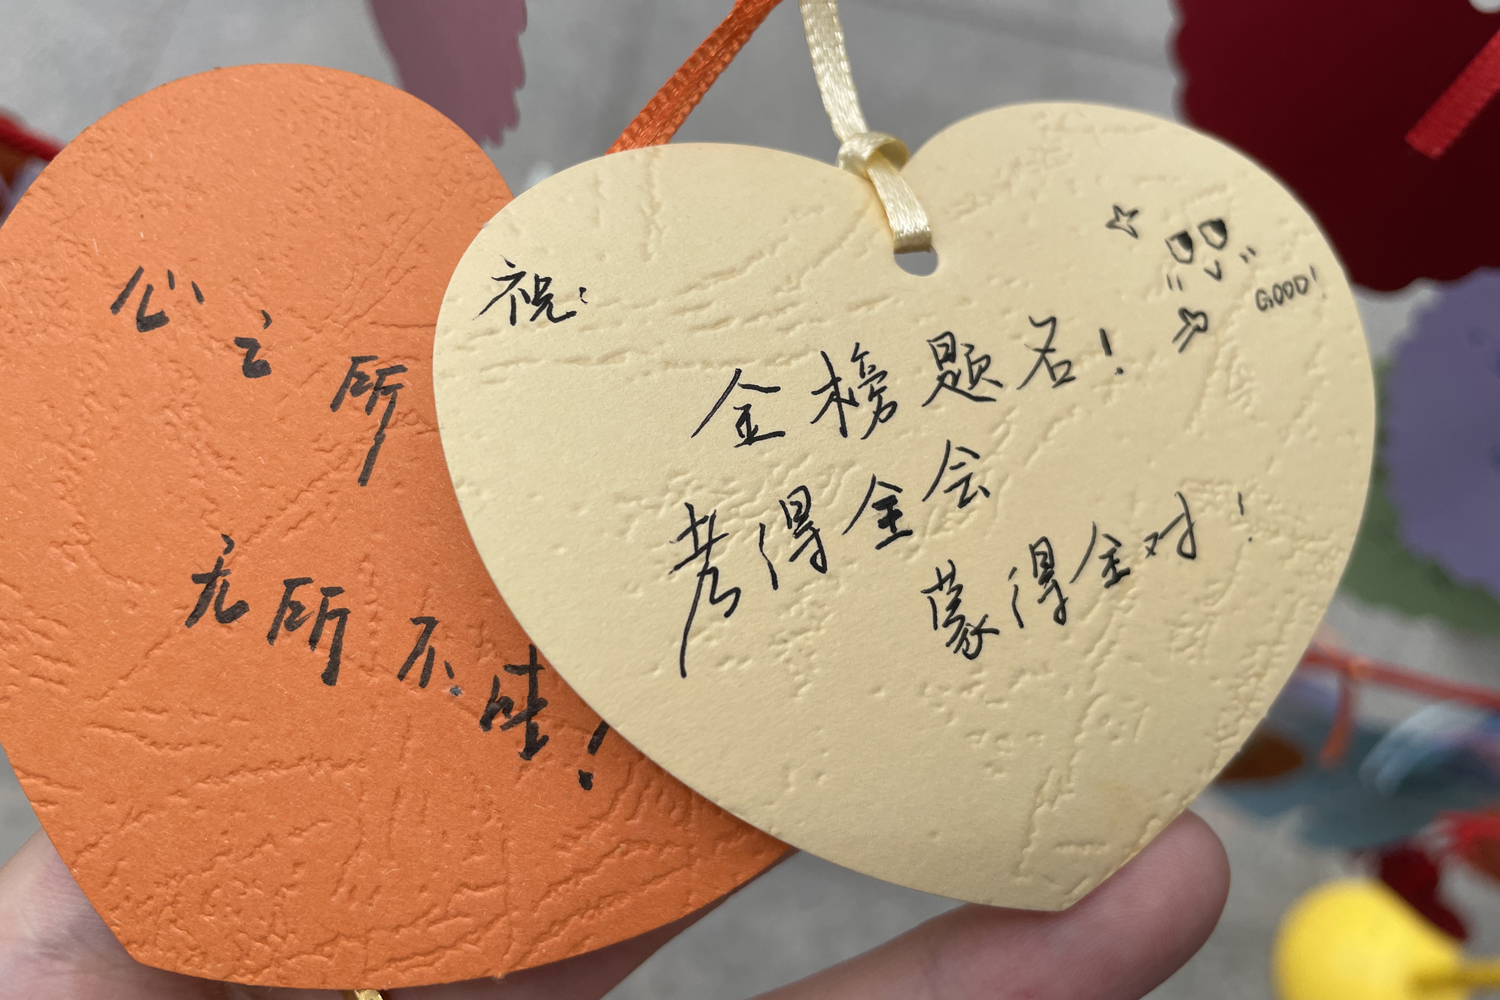 心之所
无所不
祝:
金榜题名!
考得全会
蒙得全对!
GOOD!